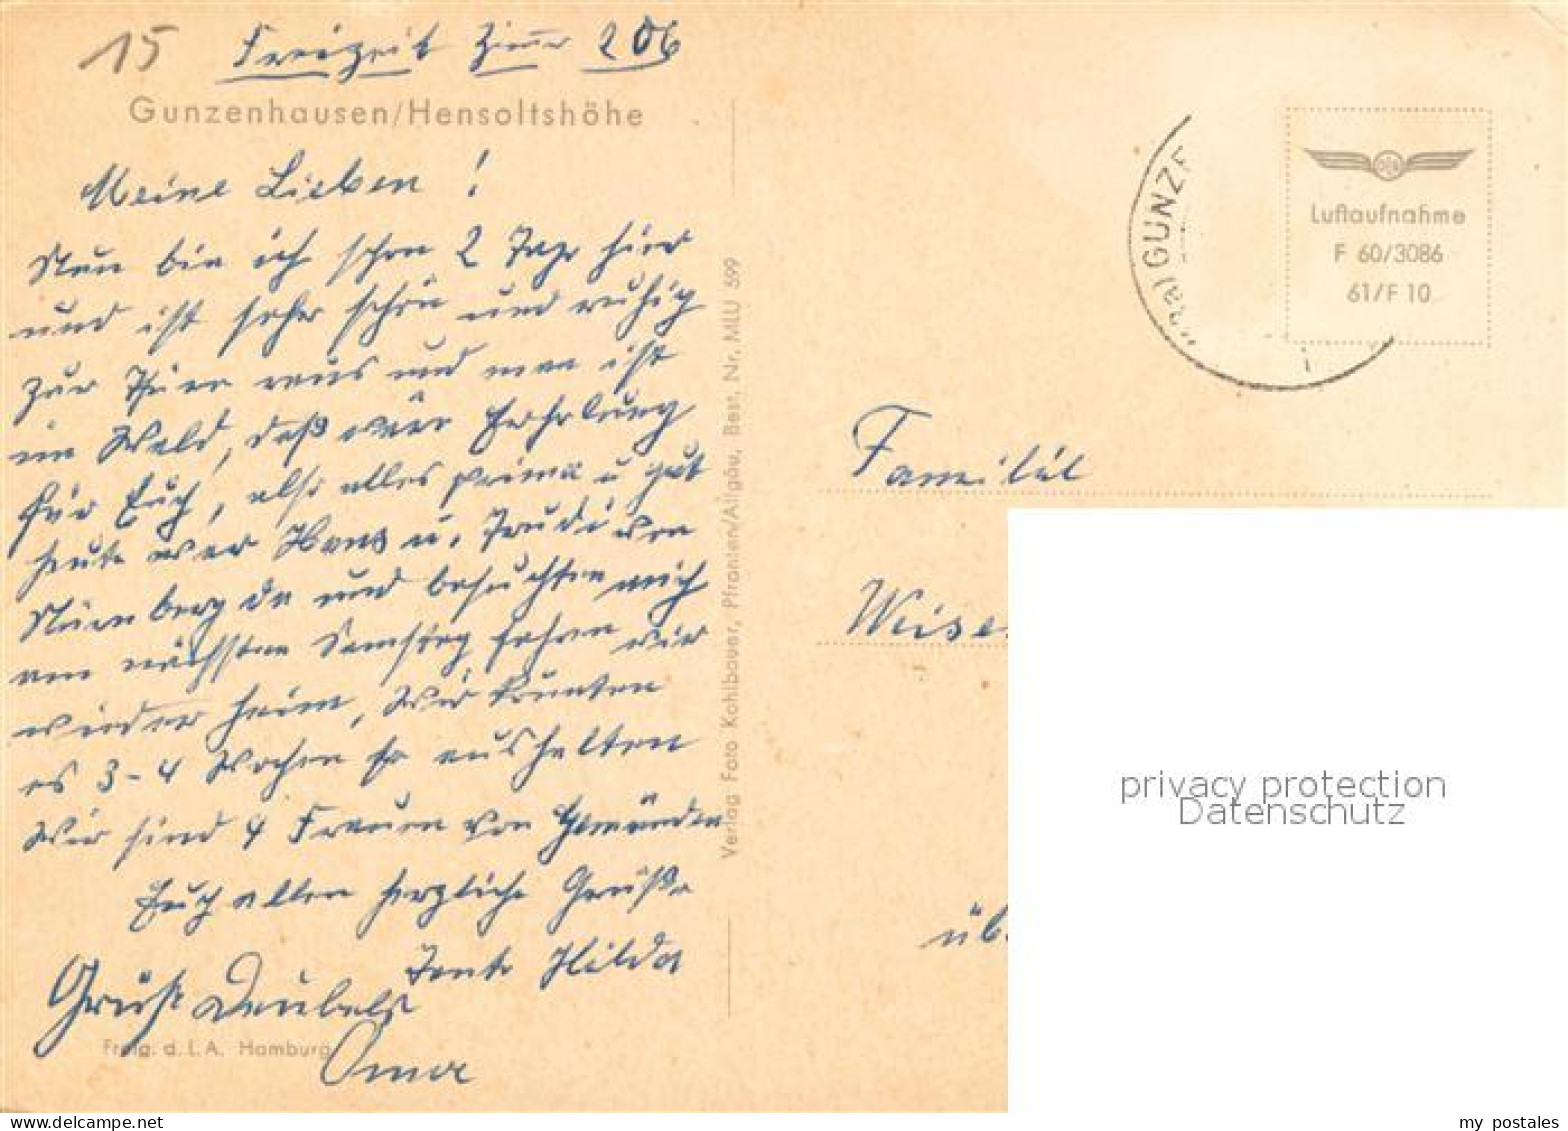 15 Freizeit Zimmer 206
Gunzenhausen/Hensoltshöhe
Meine Lieben !
Nun bin ich schon 2 Tage hier
und ist sehr schön und ruhig
zur Thür raus und man ist
im Wald, daß wär Erholung
für Euch, also alles prima u gut
heute war Hans u. Trudi von
Nürnberg da und besuchten mich
am nächsten Samstag fahren wir
wieder heim, Wir könnten
es 3-4 Wochen so aushalten
Wir sind 4 Frauen von Gemünden
Euch allen herzliche Grüße
Tante Hilda
Grüßt Deubels
Oma
Freig. d. L.A. Hamburg
Verlag Foto Kohlbauer, Pfronten/Allgäu, Best. Nr. MLU 599
(13a) GUNZE
Luftaufnahme
F 60/3086
61/F 10
Familie
Weise
üb.
privacy protection
Datenschutz
my postales